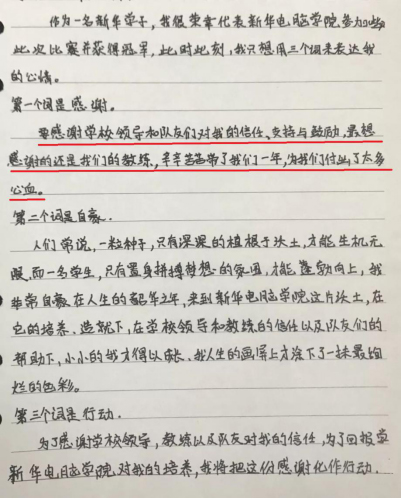 作为一名新华学子，我很荣幸代表新华电脑学院参加
此次比赛并获得冠军，此时此刻，我只想用三个词来表达我
的心情。
第一个词是感谢。
要感谢学校领导和队友们对我的信任、支持与鼓励，最想
感谢的还是我们的教练，辛辛苦苦带了我们一年，为我们付出了太多
心血。
第二个词是自豪.
人们常说，一粒种子，只有深深的植根于沃土，才能生机无
限，而一名学生，只有置身拼搏梦想的氛围，才能蓬勃向上，我
非常自豪在人生的韶华之年，来到新华电脑学院这片沃土，在
它的培养、造就下，在学校领导和教练的信任以及队友们的
帮助下，小小的我才得以成长、我人生的画屏上才涂下了一抹最绚
烂的色彩。
第三个词是行动.
为了感谢学校领导，教练以及队友对我的信任，为了回报
新华电脑学院对我的培养，我将把这份感谢化作行动.